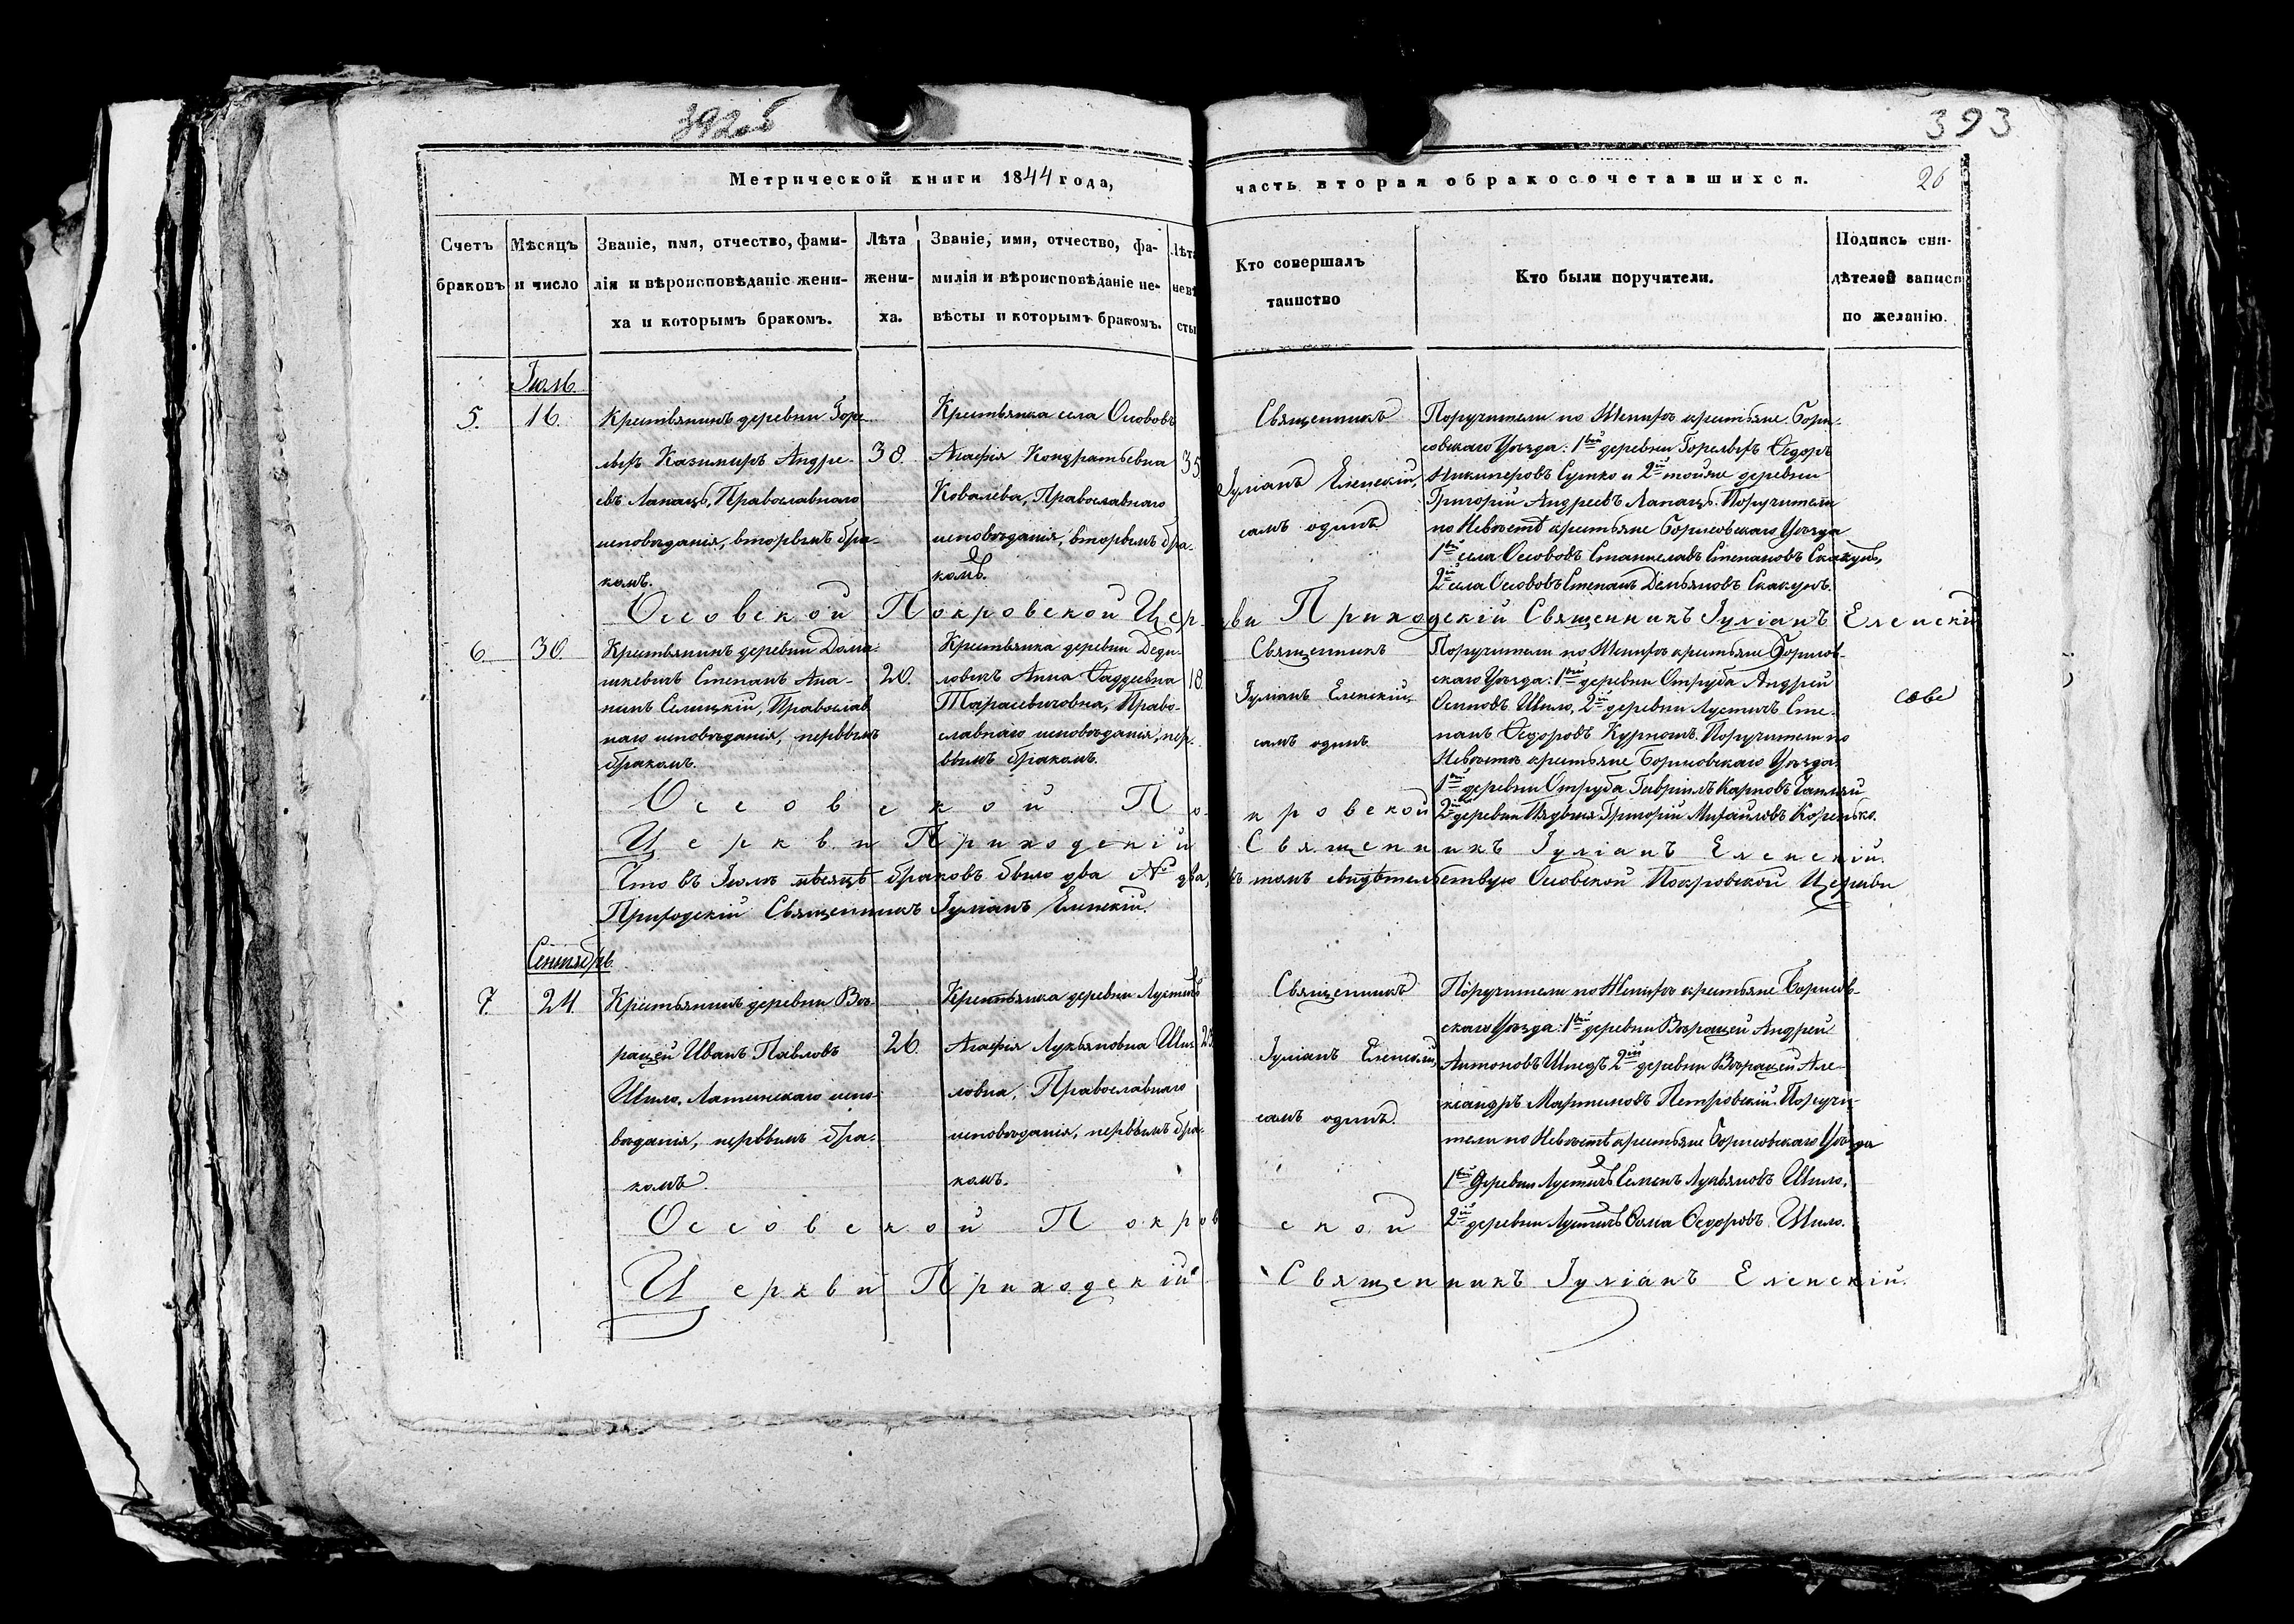 392об
393
Метрической книги 1844 года,
часть вторая о бракосочетавшихся.
26
Счетъ браковъ
Мѣсяцъ и число
Званіе, имя, отчество, фами-
лія и вѣроисповѣданіе жени-
ха и которымъ бракомъ.
Лѣта
жени-
ха.
Званіе, имя, отчество, фа-
милія и вѣроисповѣданіе не-
вѣсты и которымъ бракомъ.
Лѣта
невѣ
сты
Кто совершалъ
таинство
Кто были поручители.
Подпись сви-
дѣтелей записи
по желанію.
Іюль.
5.
16.
Крестьянинъ деревни Горе-
лыхъ Казимиръ Андре-
евъ Лапацъ, Православнаго
исповѣданія, вторымъ бра-
комъ.
38.
Крестьянка села Осововъ
Агафія Кондратьевна
Ковалева, Православнаго
исповѣданія, вторымъ бра-
комъ.
35
Священникъ
Іуліанъ Еленскій,
самъ одинъ
Поручители по Женихѣ крестьяне Бори-
совскаго Уѣзда: 1вый деревни Горелыхъ Ѳедоръ
Никипоровъ Сутко и 2ій тойже деревни
Григорій Андреевъ Лапацъ. Поручители
по Невѣстѣ крестьяне Борисовскаго Уѣзда
1вый села Осововъ Станиславъ Степановъ Скакунъ,
2ій села Осововъ Степанъ Демьяновъ Скакунъ.
Оссовской Покровской Церкви Приходскій Священникъ Іуліанъ Еленскій
6.
30.
Крестьянинъ деревни Дома-
шкевичъ Степанъ Ана-
нинъ Селицкій, Православ
наго исповѣданія, первымъ
бракомъ.
20.
Крестьянка деревни Деди-
ловичъ Анна Фаддеевна
Тарасевичовна, Право-
славнаго исповѣданія, пер-
вымъ бракомъ.
18.
Священникъ
Іуліанъ Еленскій,
самъ одинъ.
Поручители по Женихѣ крестьяне Борисов-
скаго Уѣзда: 1вый деревни Отруба Андрей
Осиповъ Шило, 2ій деревни Лустичъ Сте-
панъ Ѳедоровъ Курношъ. Поручители по
Невѣстѣ крестьяне Борисовскаго Уѣзда:
1вый деревни Отруба Гавріилъ Карповъ
2ій деревни Григорій Михайловъ Коренько.
Оссовской Покровской
Церкви Приходскій Священникъ Іуліанъ Еленскій.
Что въ Іюлѣ мѣсяцѣ браковъ было два № два, въ томъ свидѣтельствую Осовской Покровской Церкви
Приходскій Священникъ Іуліанъ Еленскій.
Сентябрь.
7.
24.
Крестьянинъ деревни Вѣ-
рацей Иванъ Павловъ
Шило, Латинскаго испо-
вѣданія, первымъ бра-
комъ.
26.
Крестьянка деревни Лустичъ
Агафія Лукьяновна Ши-
ловна, Православнаго
исповѣданія, первымъ бра-
комъ.
Священникъ
Іуліанъ Еленскій,
самъ одинъ.
Поручители по Женихѣ крестьяне Борисов-
скаго Уѣзда: 1вый деревни Вѣрацей Андрей
Антоновъ Шведъ 2ій деревни Вѣрацей Але-
ксандръ Мартиновъ Петровскій. Поручи-
тели по Невѣстѣ крестьяне Борисовскаго Уѣзда
1вый деревни Лустичъ Семенъ Лукьяновъ Шило,
2ій деревни Лустичъ Ѳома Ѳедоровъ Шило.
Оссовской Покровской
Церкви Приходскій Священникъ Іуліанъ Еленскій.